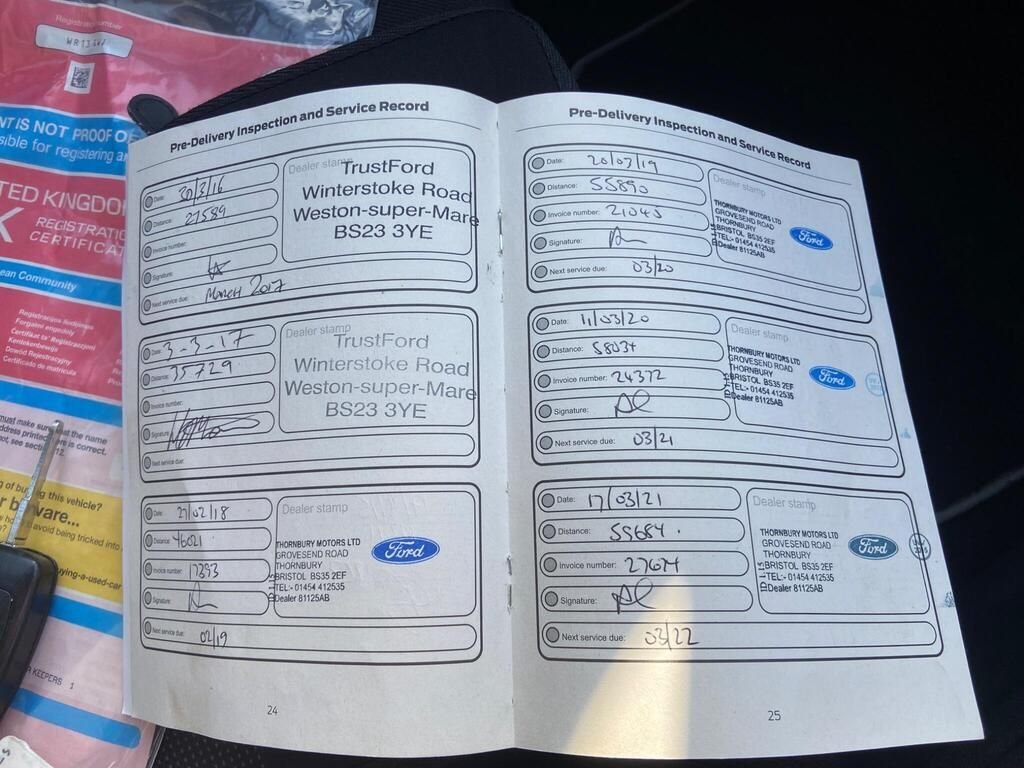 Registration number
WR13
NT IS NOT PROOF O
sible for registering a
TED KINGDO
REGISTRATIO
CERTIFICAT
ean Community
must make sure that the name
address printed here is correct.
not, see section 12.
g of buying this vehicle?
r beware...
avoid being tricked into
uying-a-used-car
KEEPERS 1
Pre-Delivery Inspection and Service Record
Date: 30/3/16
Distance: 21589
Invoice number:
Signature:
Next service due: March 2017
Dealer stamp
TrustFord
Winterstoke Road
Weston-super-Mare
BS23 3YE
Date: 3-3-17
Distance: 35729
Invoice number:
Signature:
Next service due:
Dealer stamp
TrustFord
Winterstoke Road
Weston-super-Mare
BS23 3YE
Date: 27/02/18
Distance: 46021
Invoice number: 17373
Signature:
Next service due: 02/19
Dealer stamp
THORNBURY MOTORS LTD
GROVESEND ROAD
THORNBURY
BRISTOL BS35 2EF
TEL:- 01454 412535
Dealer 81125AB
Ford
24
Pre-Delivery Inspection and Service Record
Date: 20/03/19
Distance: 55890
Invoice number: 21045
Signature:
Next service due: 03/20
Dealer stamp
THORNBURY MOTORS LTD
GROVESEND ROAD
THORNBURY
BRISTOL BS35 2EF
TEL:- 01454 412535
Dealer 81125AB
Ford
Date: 11/03/20
Distance: 58034
Invoice number: 24372
Signature:
Next service due: 03/21
Dealer stamp
THORNBURY MOTORS LTD
GROVESEND ROAD
THORNBURY
BRISTOL BS35 2EF
TEL:- 01454 412535
Dealer 81125AB
Ford
Date: 17/03/21
Distance: 59684.
Invoice number: 27674
Signature:
Next service due: 03/22
Dealer stamp
THORNBURY MOTORS LTD
GROVESEND ROAD
THORNBURY
BRISTOL BS35 2EF
TEL:- 01454 412535
Dealer 81125AB
Ford
25